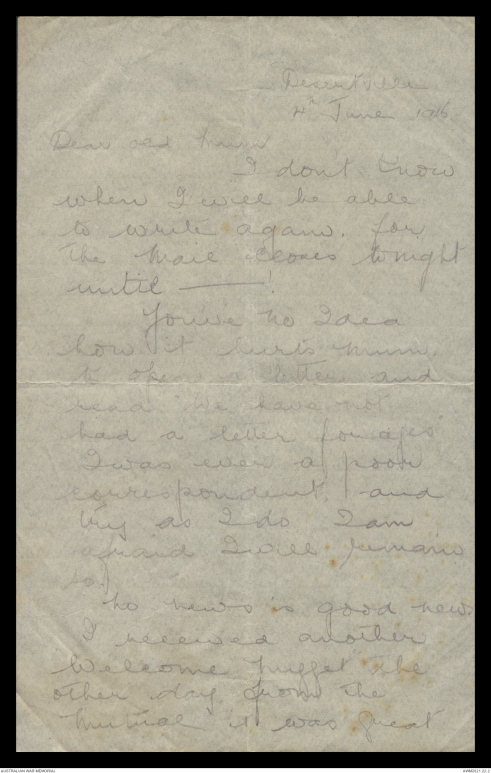 Desertville
4th June 1916
Dear old Mum
I dont know
when I will be able
to write again. for
the Mail closes tonight
until ——— !
You've no Idea
how it hurts Mum,
to open a letter and
read "We have not
had a letter for ages"
I was ever a poor
correspondent, and
try as I do I am
afraid I will remain
so.
No news is good news.
I received another
Welcome "nugget" the
other day from the
"Mutual" it was great
AUSTRALIAN WAR MEMORIAL